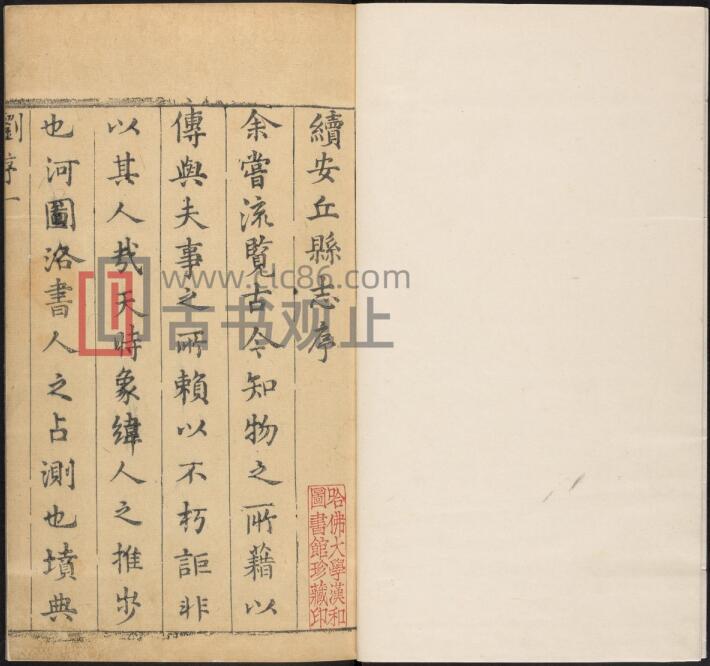 續安丘縣志序
余嘗流覽古今知物之所藉以
傳與夫事之所賴以不朽詎非
以其人哉天時象緯人之推步
也河圖洛書人之占測也墳典
劉序一
哈佛大學漢和
圖書館珍藏印
www.rlc86.com
古书观止